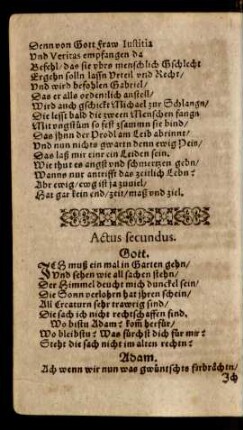 Denn von Gott fraw Iustitia
Vnd Veritas empfangen da
Befehl/ das sie vbro menschlich Gschlecht
Ergehn solln lassn Vrteil vnd Recht/
Vnd wird befohlen Gabriel/
Das er alls ordentlich anstell/
Wird auch gschickt Michael zur Schlangn/
Die lesst bald die zween Menschen fangn
Mit vngstüm so fest zsammn sie bind/
Das jhn der am Leib abrinnt/
Vnd nun nichts gwartn denn ewig Pein/
Das laß mir einr ein Leiden sein.
Wie thut es angst vnd schmertzen gehn/
Wanns nur antrifft das zeitlich Lebn?
Abr ewig/ ewg ist ja zuuiel/
Hat gar kein end/ zeit/ maß vnd ziel.
Actus secundus.
Gott.
ICH muß ein mal in Garten gehn/
Vnd sehen wie all sachen stehn/
Der Himmel deucht mich dunckel sein/
Die Sonn verlohrn hat jhren schein/
All Creaturn sehr trawrig sind/
Die sach ich nicht rechtschaffen find.
Wo bistu Adam? kom herfür/
Wo bleibstu? Was fürchst dich für mir?
Steht die sach nicht im alten rechtn?
Adam.
Ach wenn wir nun was gwüntschts fürbrächtn/
Ich